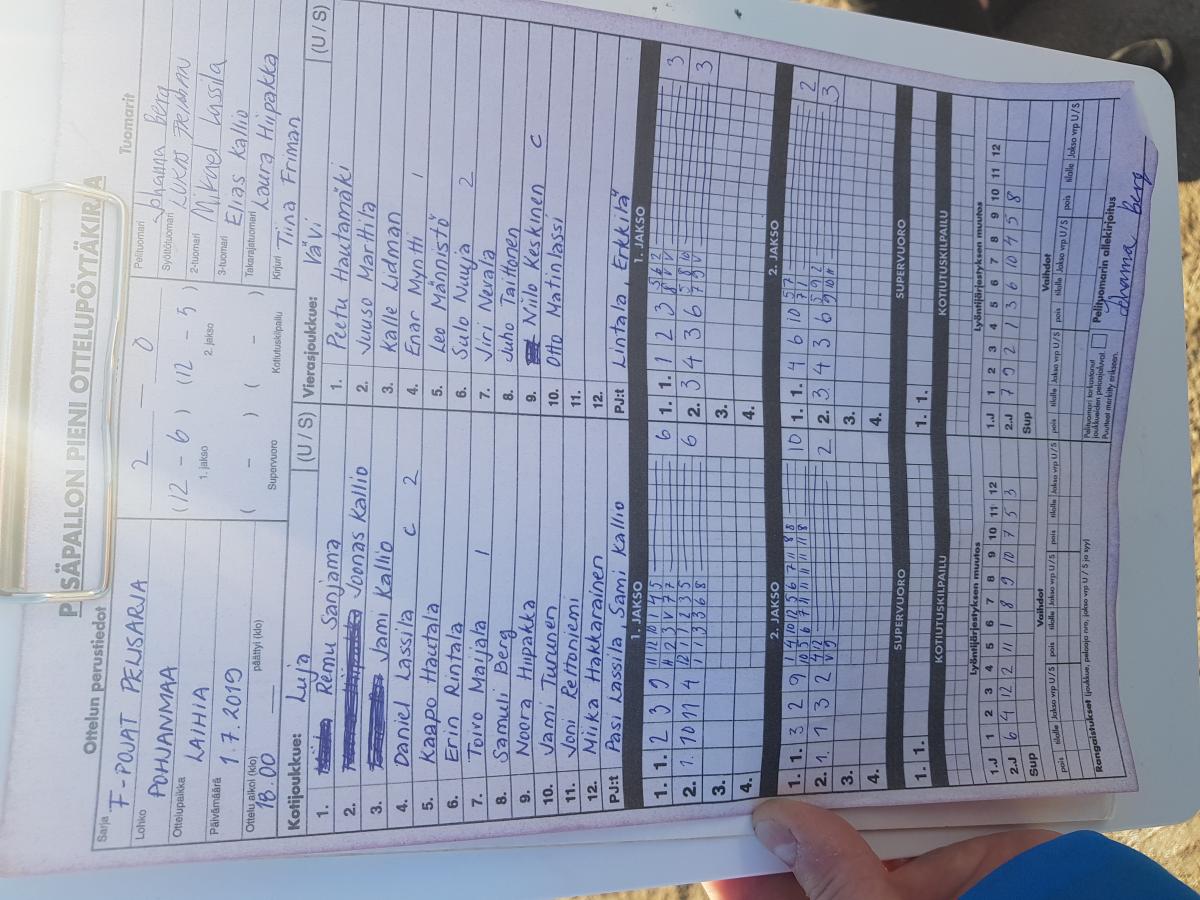 PESÄPALLON PIENI OTTELUPÖYTÄKIRJA
Ottelun perustiedot
Sarja F-POJAT PENSARJA
Lohko POHJANMAA
Ottelupaikka LAIHIA
Päivämäärä 1.7.2019
Ottelu alkoi (klo) 18.00 päättyi (klo)
2 – 0
(12 – 6) (12 – 5)
1. jakso 2. jakso
( – ) ( – )
Supervuoro Kotiutuskilpailu
Tuomarit
Pelituomari Johanna Berg
Syöttötuomari LUKAS FRIMAN
2-tuomari Mikael Lassila
3-tuomari Elias Kallio
Takarajatuomari Laura Hiipakka
Kirjuri Tiina Friman
Kotijoukkue: Luja (U / S)
1. Remu Sanjama
2. Joonas Kallio
3. Jami Kallio
4. Daniel Lassila C 2
5. Kaapo Hautala
6. Erin Rintala
7. Toivo Maijala 1
8. Samuli Berg
9. Noora Hiipakka
10. Jami Turunen
11. Joni Rettoniemi
12. Miika Hakkarainen
PJ:t Pasi Lassila, Sami Kallio
Vierasjoukkue: VäVi (U / S)
1. Peetu Hautamäki
2. Juuso Marttila
3. Kalle Lidman
4. Enar Myntti 1
5. Leo Männistö
6. Sulo Nuuja 2
7. Jiri Nevala
8. Juho Taittonen
9. Niilo Keskinen C
10. Otto Matinlassi
11.
12.
PJ:t Lintala, Erkkilä
1. JAKSO
1. 1. 2 3 9 6
2. 1. 10 11 4 6
3.
4.
1. JAKSO
1. 1. 1 2 3 3
2. 3 4 3 6 3
3.
4.
2. JAKSO
1. 1. 3 2 9 10
2. 1. 1 3 2 2
3.
4.
2. JAKSO
1. 1. 4 6 10 2
2. 3 4 3 6 3
3.
4.
SUPERVUORO
1. 1.
SUPERVUORO
1. 1.
KOTIUTUSKILPAILU
KOTIUTUSKILPAILU
Lyöntijärjestyksen muutos
1.J 1 2 3 4 5 6 7 8 9 10 11 12
2.J 6 4 12 2 11 1 8 9 10 7 5 3
Sup
Lyöntijärjestyksen muutos
1.J 1 2 3 4 5 6 7 8 9 10 11 12
2.J 7 9 2 1 3 6 10 4 5 8
Sup
Vaihdot
pois tilalle Jakso vrp U / S pois tilalle Jakso vrp U / S pois tilalle Jakso vrp U / S
Vaihdot
pois tilalle Jakso vrp U / S pois tilalle Jakso vrp U / S pois tilalle Jakso vrp U / S
Rangaistukset (joukkue, pelaaja nro, jakso vrp U / S ja syy)
Pelituomari tarkastanut joukkueiden pelaajaluvat.
Puutteet merkitty erikseen.
Pelituomarin allekirjoitus
Johanna Berg